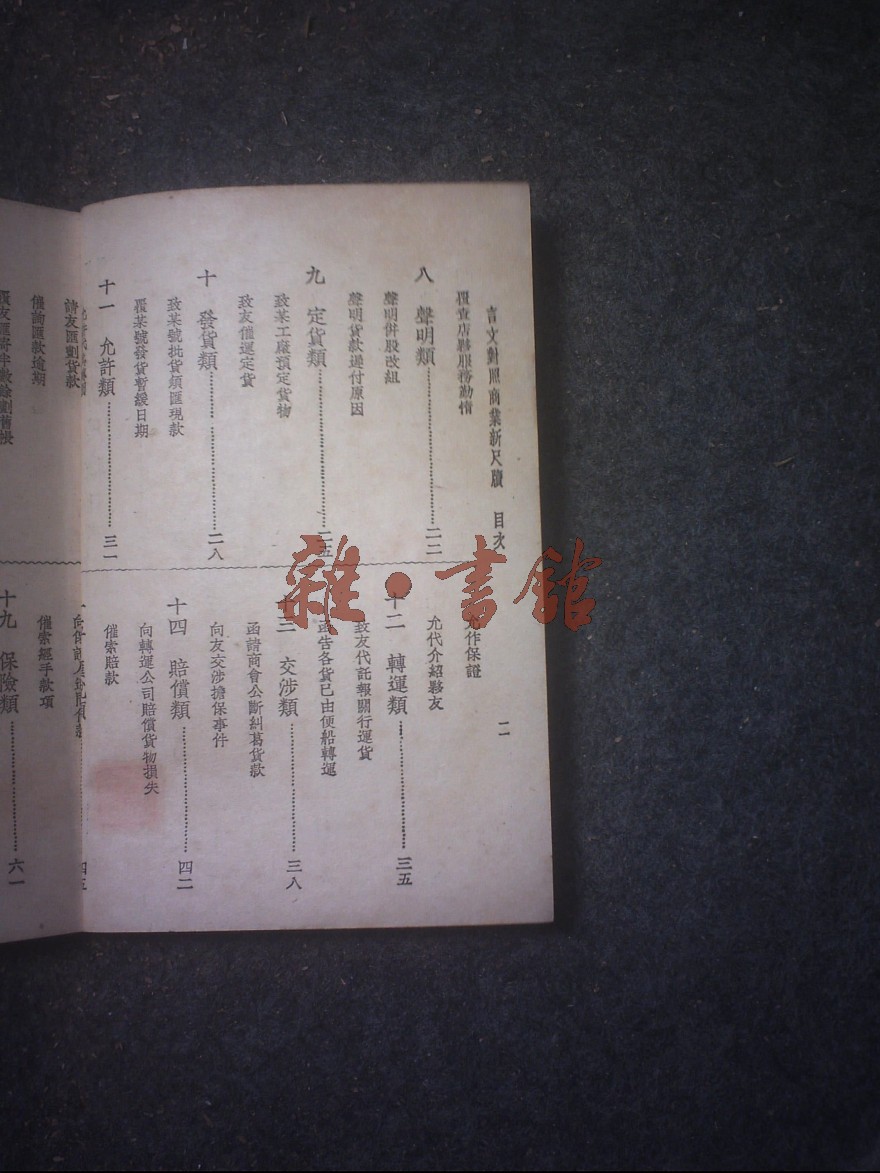 言文對照商業新尺牘　目次　二
覆查店夥服務勤惰
八　聲明類……二二
聲明併股改組
聲明貨款遲付原因
九　定貨類……二五
致某工廠預定貨物
致友催運定貨
十　發貨類……二八
致某號批貨須匯現款
覆某號發貨暫緩日期
十一　允許類……三一
允作保證
允代介紹夥友
十二　轉運類……三五
致友代託報關行運貨
函告各貨已由便船轉運
十三　交涉類……三八
函請商會公斷糾葛貨款
向友交涉擔保事件
十四　賠償類……四二
向轉運公司賠償貨物損失
催索賠款
四五
請友匯劃貨款
催詢匯款逾期
催索經手款項
十九　保險類……六一
雜·書館